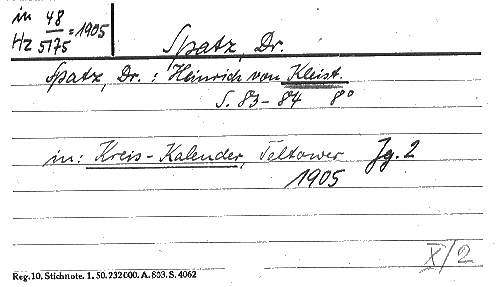 in 48
Hz 5175 = 1905
Spatz, Dr.
Spatz, Dr. : Heinrich von Kleist.
S. 83-84 8°
in: Kreis-Kalender, Teltower Jg. 2
1905
X/2
Reg. 10. Stichnote. 1. 50. 232000. A. 803. S. 4062